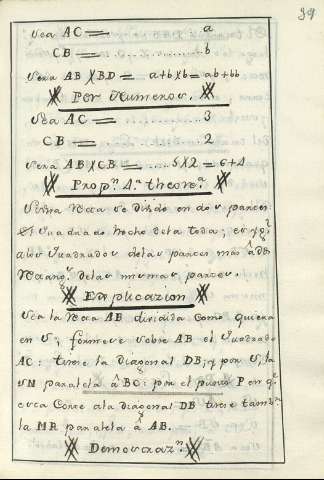 39
Sea AC = ........ a
CB = ........ b
Sera AB X BD = a+b X b = ab+bb
Por Numeros.
Sea AC = ........ 3
CB = ........ 2
Sera AB X CB = ..... 5 X 2 = 6+4
Propn. 4a. theorea.
Si una Recta se divide en dos partes
el Quadrado hecho dela toda; es yg.
alos Quadrados delas partes mas â dos
Rectangs. delas mismas partes.
Explicazion
Sea la Recta AB dividida como quiera
en S; formese sobre AB el Quadrado
AC: tirese la diagonal DB; y por S, la
SN paralela â BC: por el punto P en qe.
esta Corte ala diagonal DB tirese tambn.
la MR paralela â AB.
Demostrazn.